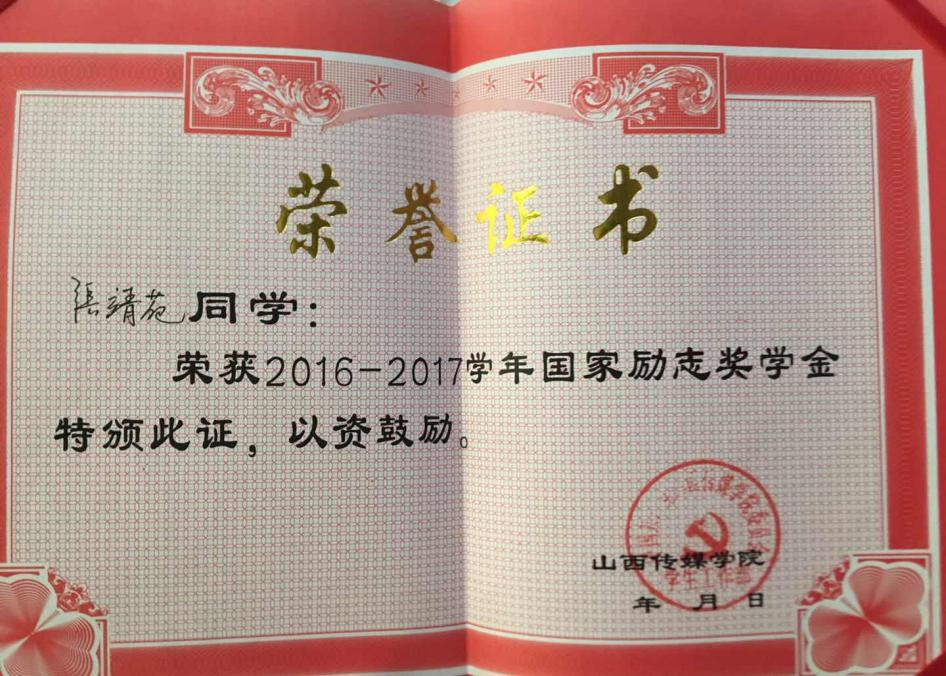 荣誉证书
张靖苑同学：
荣获2016-2017学年国家励志奖学金
特颁此证，以资鼓励。
山西传媒学院
学生工作部
年 月 日